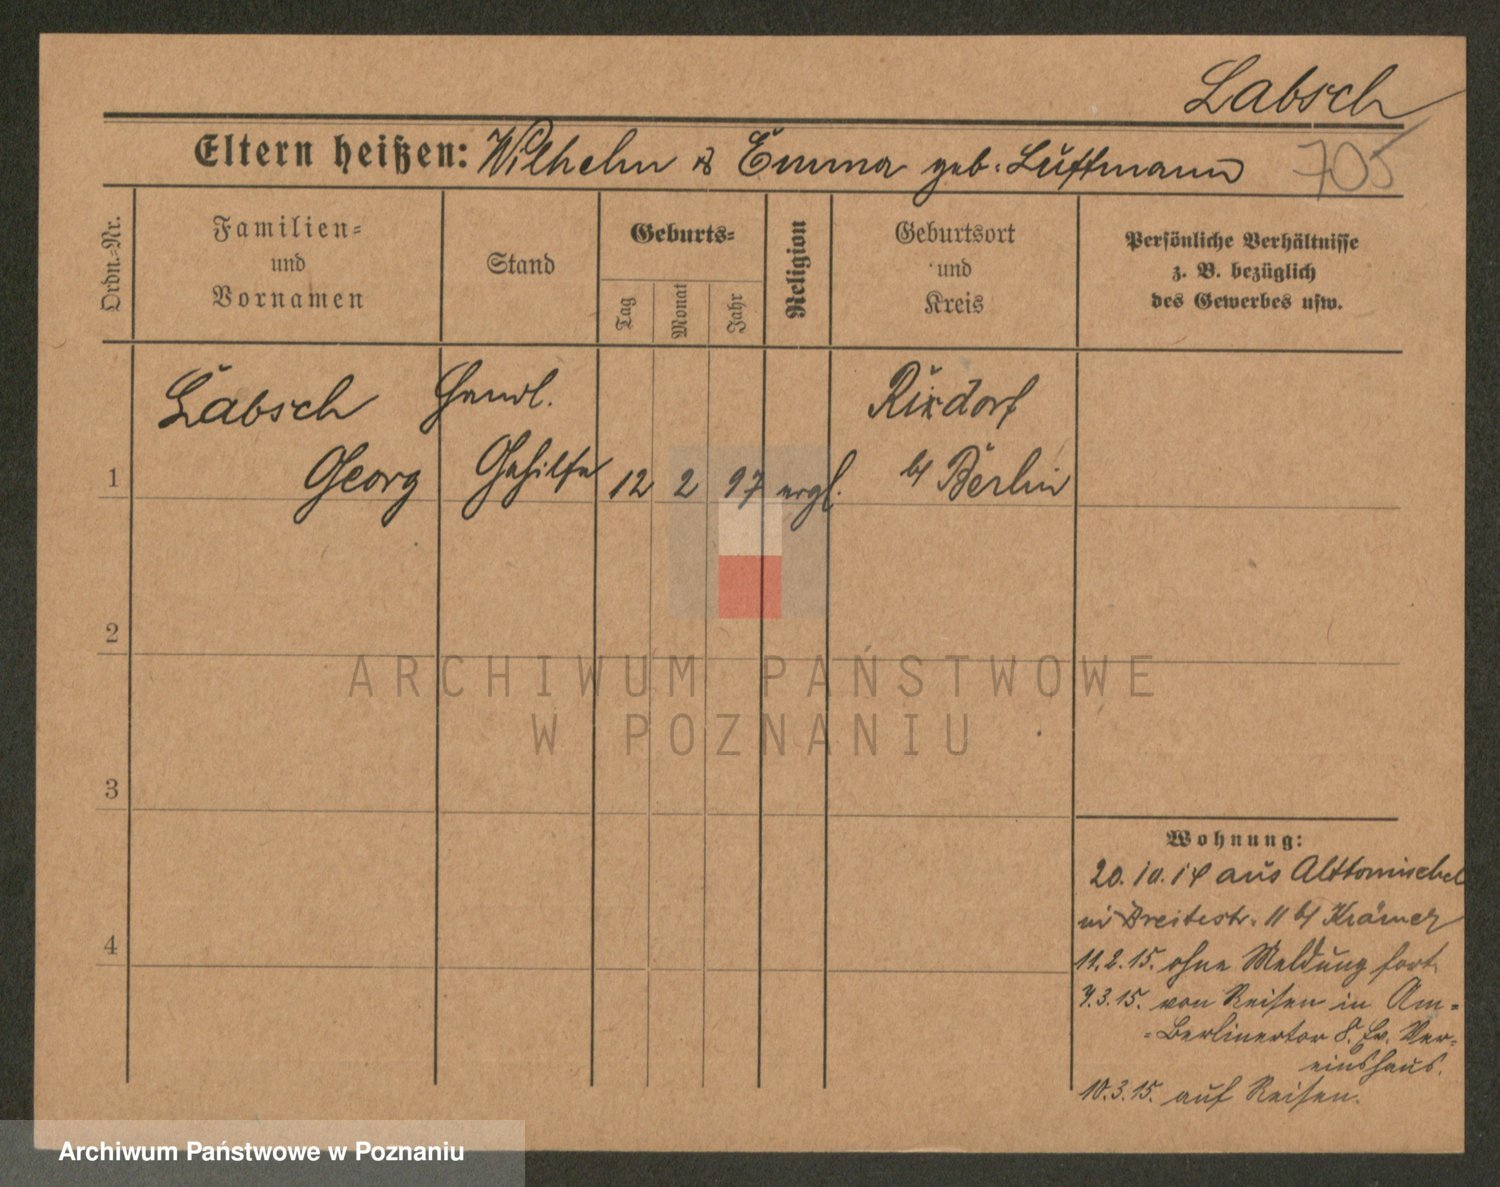 Labsch
Eltern heißen: Wilhelm & Emma geb. Luftmann
705
Ordn.-Nr.
Familien-
und
Vornamen
Stand
Geburts-
Tag
Monat
Jahr
Religion
Geburtsort
und
Kreis
Persönliche Verhältnisse
z. B. bezüglich
des Gewerbes usw.
Labsch Handl. Rixdorf
1 Georg Gehilfe 12 2 97 evgl. b/ Berlin
2
3
4
Wohnung:
20.10.14 aus Alttomischel
in Breitestr. 11 b/ Krämer
11.2.15. ohne Meldung fort.
7.3.15. von Reisen in Am-
-Berlinertor 8. Ev. Ver-
einshaus.
10.3.15. auf Reisen.
ARCHIWUM PAŃSTWOWE
W POZNANIU
Archiwum Państwowe w Poznaniu